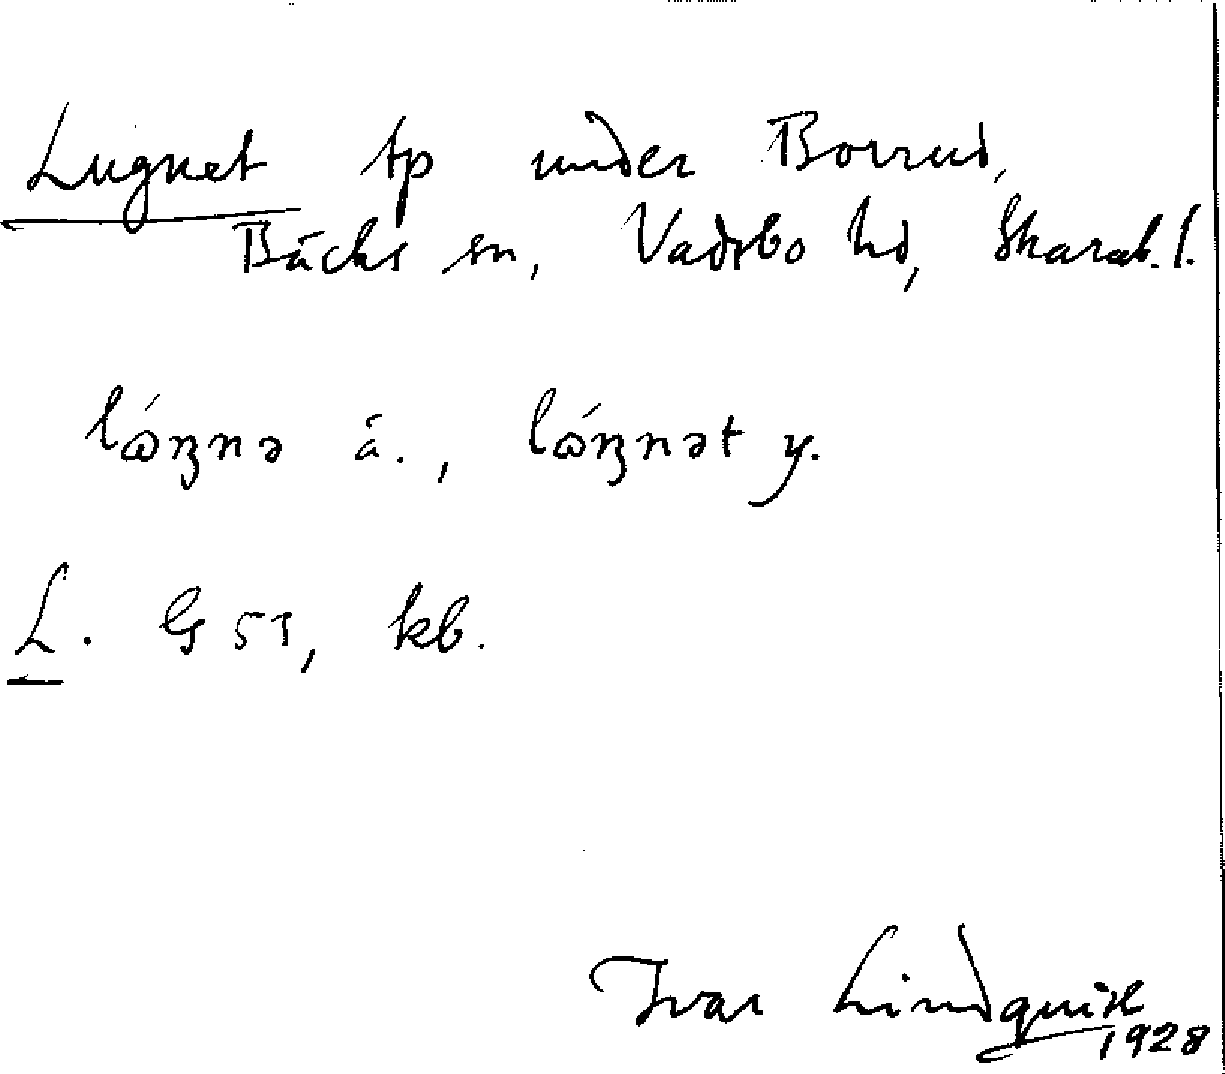 Lugnet tp under Borrud,
Bäcks sn, Vadsbo hd, Skarab. l.
lǿŋnə ä., lǿŋnət y.
L. G 51, kb.
Ivar Lindquist
1928